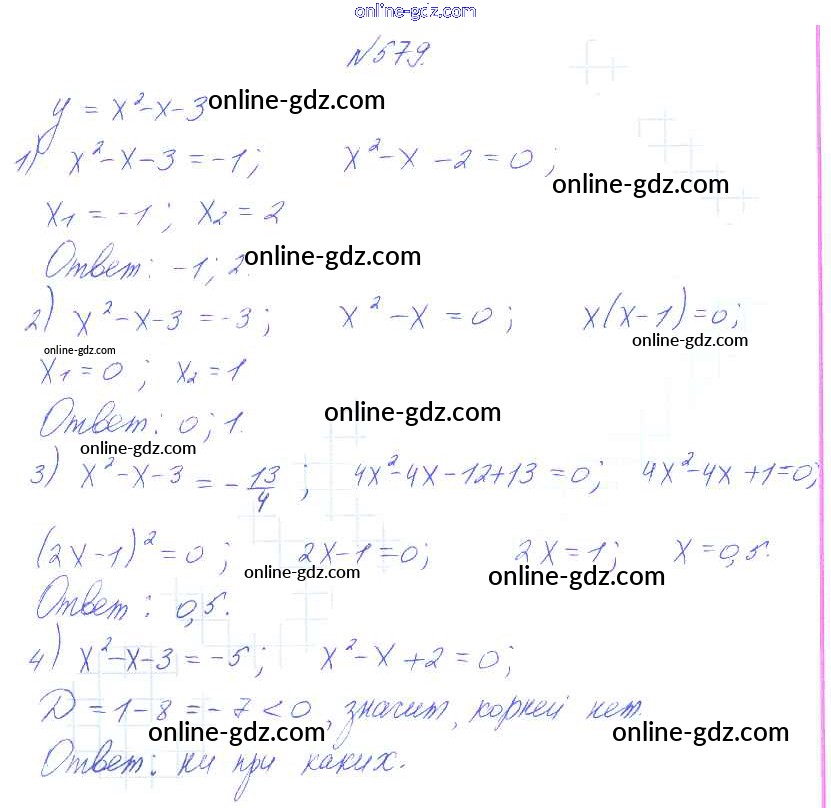 online-gdz.com
№579.
y = x² - x - 3 online-gdz.com
1) x² - x - 3 = -1; x² - x - 2 = 0;
online-gdz.com
x₁ = -1; x₂ = 2
Ответ: -1; 2. online-gdz.com
2) x² - x - 3 = -3; x² - x = 0; x(x-1)=0;
online-gdz.com online-gdz.com
x₁ = 0; x₂ = 1
Ответ: 0; 1. online-gdz.com
online-gdz.com
3) x² - x - 3 = -13/4; 4x² - 4x - 12 + 13 = 0; 4x² - 4x + 1 = 0;
(2x - 1)² = 0; 2x - 1 = 0; 2x = 1; x = 0,5.
online-gdz.com online-gdz.com
Ответ: 0,5.
4) x² - x - 3 = -5; x² - x + 2 = 0;
D = 1 - 8 = -7 < 0, значит, корней нет.
online-gdz.com online-gdz.com
Ответ: ни при каких.